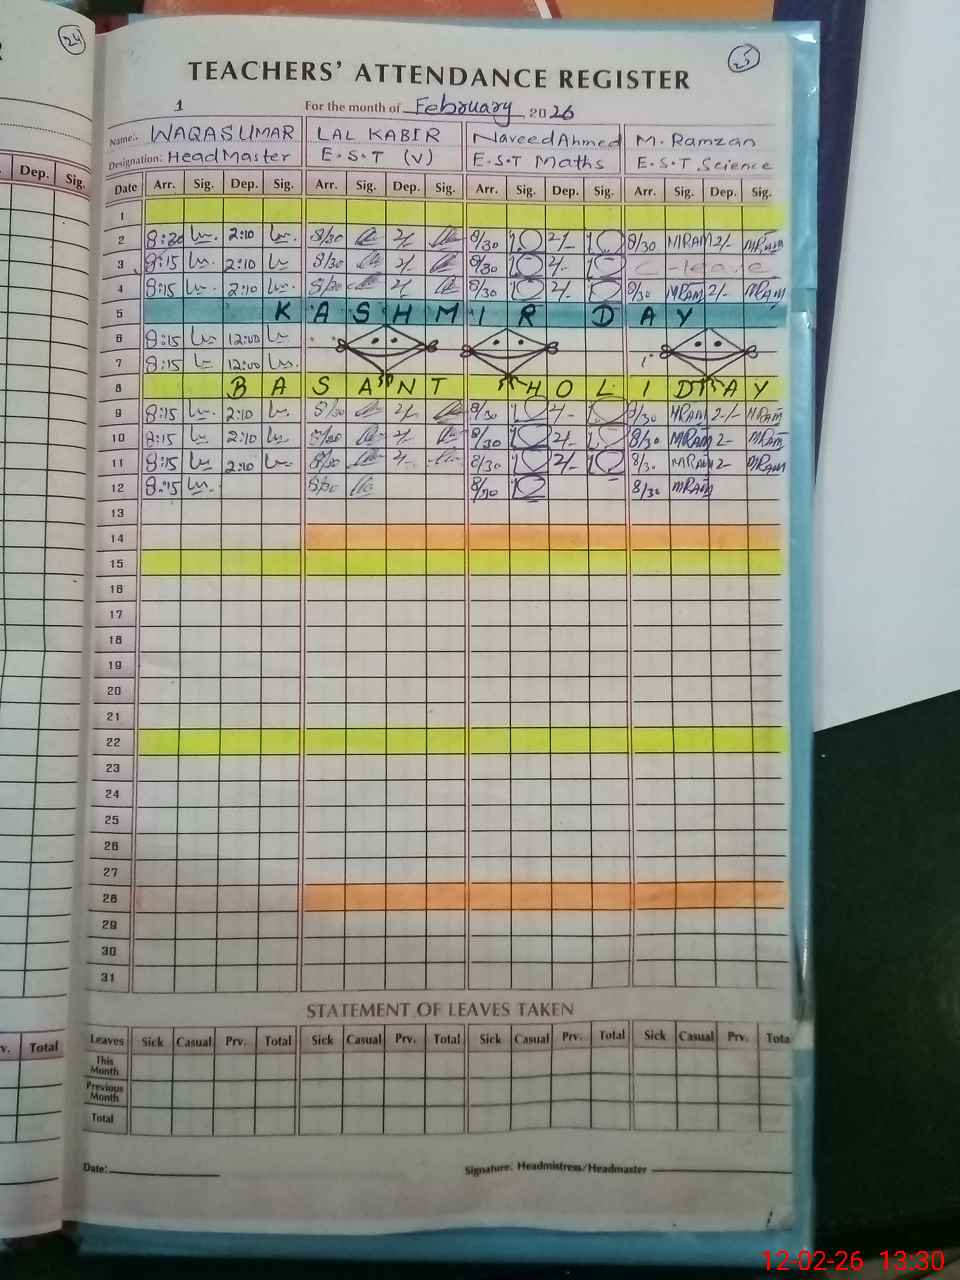 24
25
TEACHERS' ATTENDANCE REGISTER
1 For the month of February 2026
Name:. WAQAS UMAR LAL KABIR Naveed Ahmed M. Ramzan
Designation: Head Master E.S.T (V) E.S.T Maths E.S.T Science
Dep. Sig.
Date Arr. Sig. Dep. Sig. Arr. Sig. Dep. Sig. Arr. Sig. Dep. Sig. Arr. Sig. Dep. Sig.
1
2 8:20 2:10 8/30 2/- 8/30 2/- 8/30 MRAM 2/- MRam
3 8:15 2:10 8/30 2/- 8/30 2/- C-leave
4 8:15 2:10 8/30 2/- 8/30 2/- 8/30 MRAM 2/- MRAM
5 KASHMIR DAY
6 8:15 12:00
7 8:15 12:00
8 BASANT HOLIDAY
9 8:15 2:10 8/30 2/- 8/30 2/- 8/30 MRAM 2-/- MRAM
10 8:15 2:10 8/30 2/- 8/30 2/- 8/30 MRAM 2- MRAM
11 8:15 2:10 8/30 2/- 8/30 2/- 8/3. MRAM 2- MRAM
12 8:15 8/30 8/30 8/30 MRAM
13
14
15
16
17
18
19
20
21
22
23
24
25
26
27
28
29
30
31
STATEMENT OF LEAVES TAKEN
v. Total
Leaves Sick Casual Prv. Total Sick Casual Prv. Total Sick Casual Prv. Total Sick Casual Prv. Tota
This
Month
Previous
Month
Total
Date: Signature: Headmistress/Headmaster
12-02-26 13:30